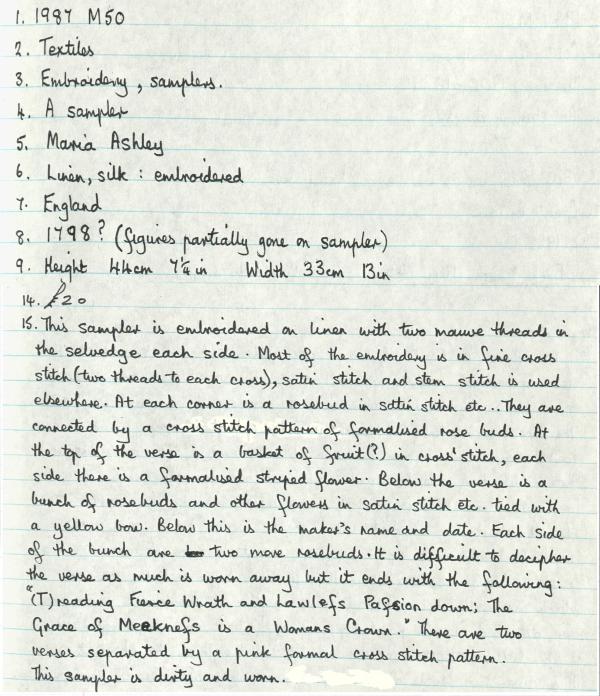 1. 1987 M50
2. Textiles
3. Embroidery, samplers.
4. A sampler
5. Maria Ashley
6. Linen, silk : embroidered
7. England
8. 1798? (figures partially gone on sampler)
9. Height 44cm 7¼in Width 33cm 13in
14. £20
15. This sampler is embroidered on linen with two mauve threads in
the selvedge each side. Most of the embroidery is in fine cross
stitch (two threads to each cross), satin stitch and stem stitch is used
elsewhere. At each corner is a rosebud in satin stitch etc.. They are
connected by a cross stitch pattern of formalised rose buds. At
the top of the verse is a basket of fruit(?) in cross stitch, each
side there is a formalised striped flower. Below the verse is a
bunch of rosebuds and other flowers in satin stitch etc. tied with
a yellow bow. Below this is the maker's name and date. Each side
of the bunch are two more rosebuds. It is difficult to decipher
the verse as much is worn away but it ends with the following:
"(T)reading Fierce Wrath and Lawleſs Paſsion down; The
Grace of Meekneſs is a Womans Crown." There are two
verses separated by a pink formal cross stitch pattern.
This sampler is dirty and worn.